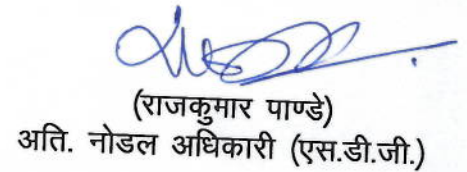 (राजकुमार पाण्डे)
अति. नोडल अधिकारी (एस.डी.जी.)